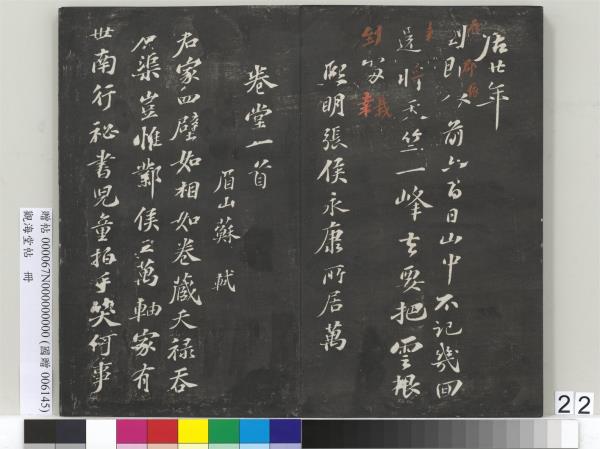 居廿年
在郡依前六百日山中不記幾回
還將天竺一峰去要把雲根
到處栽
熙明張侯永康所居萬
卷堂一首
眉山蘇軾
君家四壁如相如卷藏天祿吞
石渠豈惟鄴侯三萬軸家有
世南行祕書兒童拍手笑何事
贈帖 000067N000000000 (國贈 006145)
觀海堂帖 冊
22